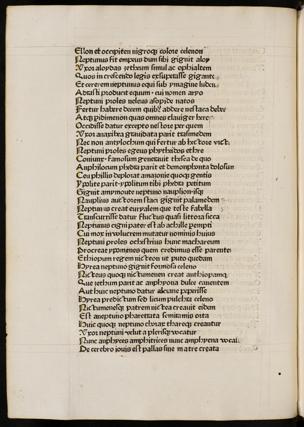 Ellon et occipiten nigroqꝫ colore celenon
Neptunus fit emptus dum sibi gignit aloy
Vxor aloydas zethum simul ac ephialtem
Quos in crescendo legis exsuperasse gigante
Et cererem neptunus equi sub ymagine ludens
Abtalit produnt equum cui nomen aryo
Neptuni proles neleus aspide natos
Fertur habere duum quibꝰ addere nestara debes
Atqꝫ pidimenon quas omnes clauiger here
Occidisse datur excepto nestore per quem
Vxor anaxibia grauidata parit trasimedem
Nec non antylochum qui fertur ab hectore vict
Neptuni proles egeus phytheidos ethre
Coniunx famosum generauit thesea de quo
Antiphilochum phedra parit et demophonta dolosum
Ceu phillis deplorat amazonis quoqꝫ gentis
Ypolite parit ypolitum tibi phedra petitum
Gignit amymone neptuni nauplion
Nauplius auctorem stan gignit palamedem
Neptunus creat euryalem que teste fabella
Transcurrisse datur fluctus quasi littora sicca
Neptunus cigni pater est ab achille perempti
Cui mox in volucrem mutatur nominis huius
Neptuni proles ochstrius hunc machareum
Procreat ypomenes quem credimus esse parente
Ethiopum regem nicteon ut puto quedam
Hyrea neptuno gignit formosa celeno
Nicteus quoqꝫ nictimenem creat anthiopamqꝫ
Que zethum parit ac amphyona dulce canentem
Aut huic neptuno datur alcione peperisse
Hyrea predictum sed licum pulchra celeno
Nictimenesqꝫ patrem nictea creauit eidem
Est aneptuno pharettata semitamis orta
Huic quoqꝫ neptuno chyrae thareqꝫ creantur
Vxor neptuni velut a plerisqꝫ vocatur
Nunc amphyrces amphitrices nunc amphyrna vocat
De cerebro iouis est pallas sine matre creata